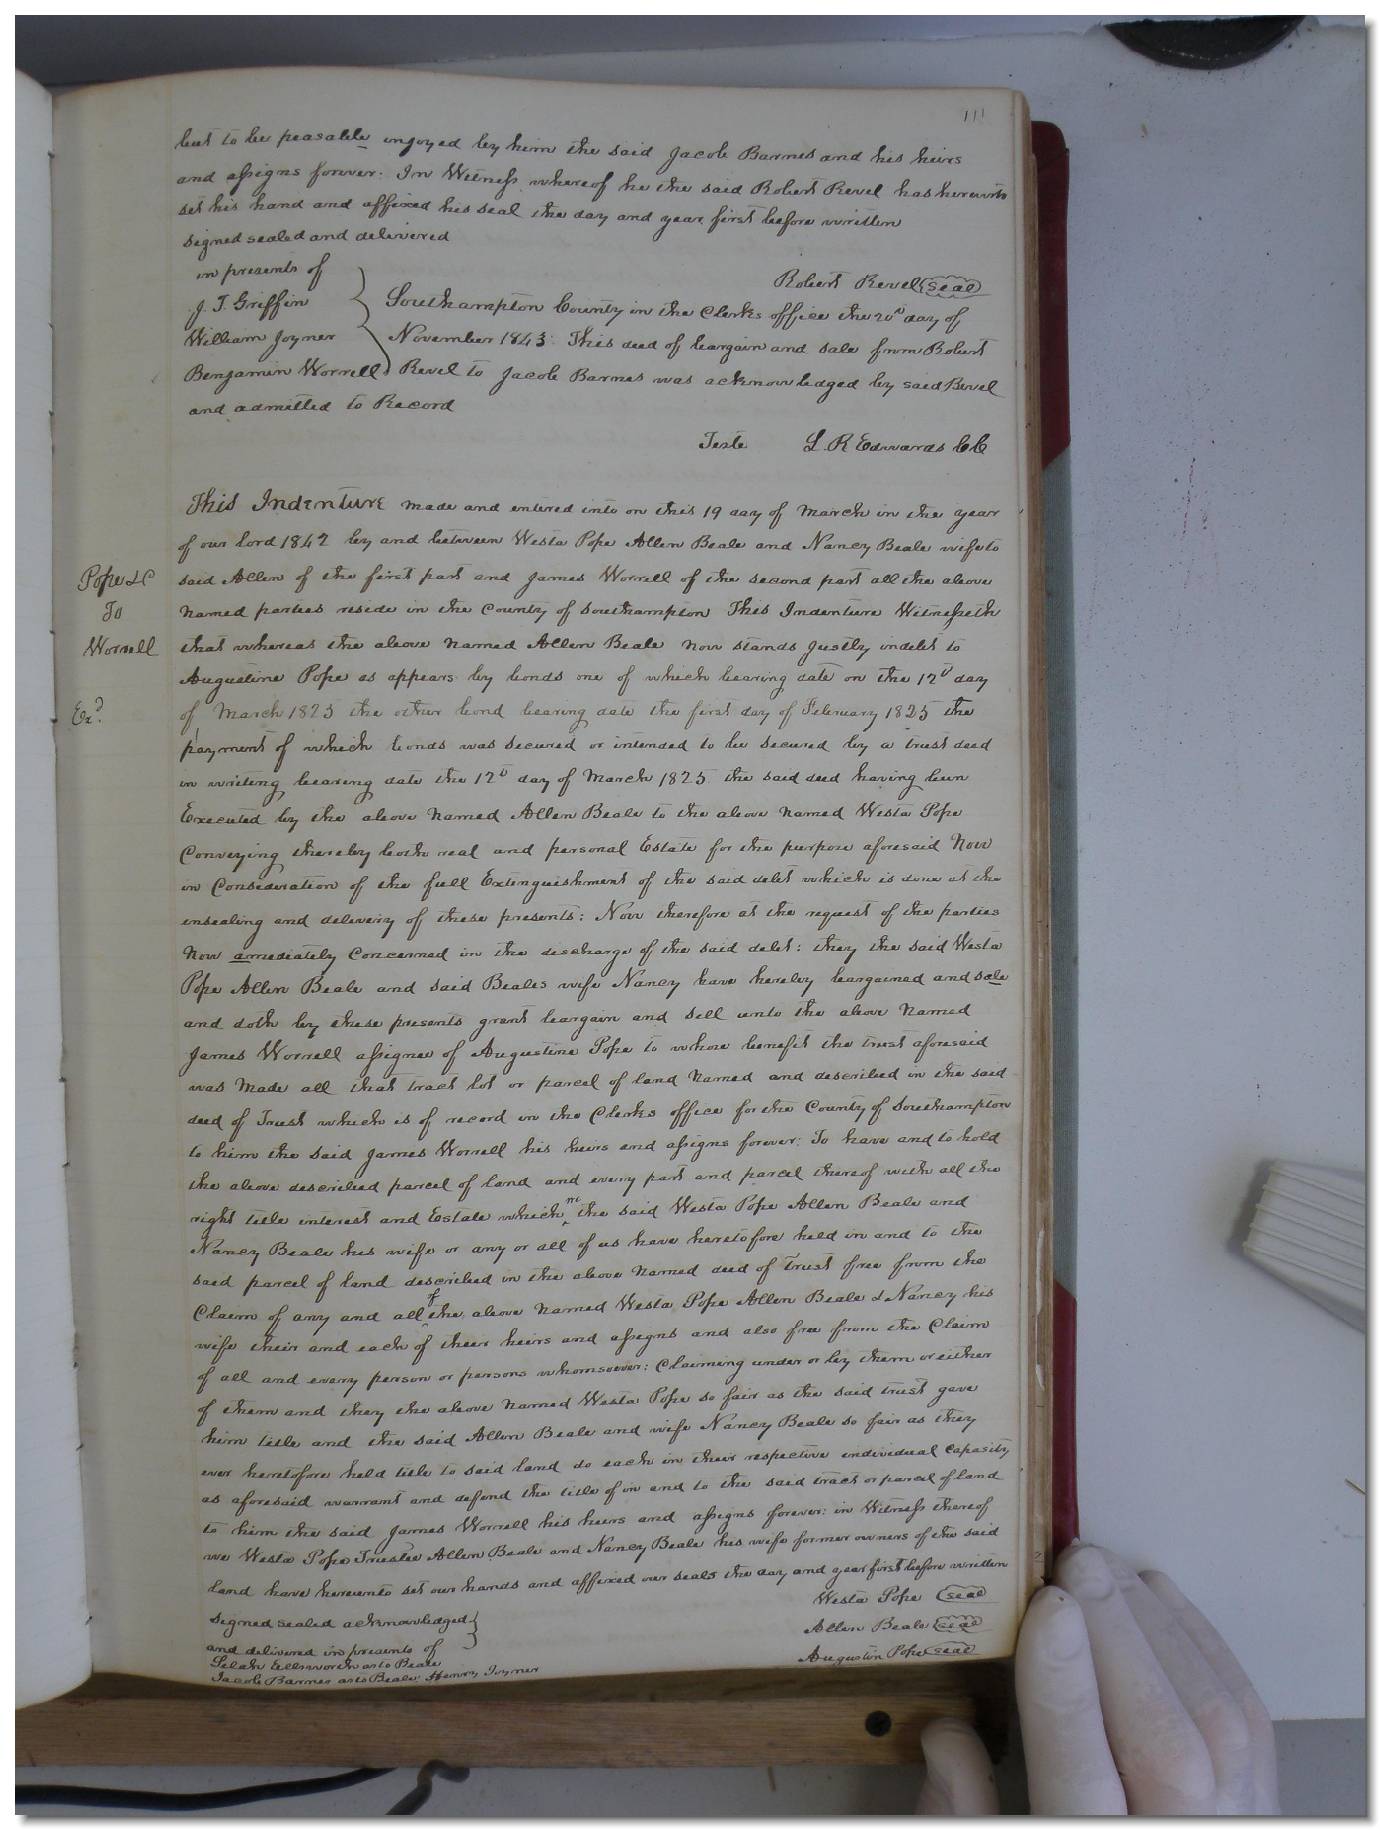 111
but to be peasable enjoyed by him the said Jacob Barnes and his heirs
and assigns forever. In Witness whereof he the said Robert Revel has herewith
set his hand and affixed his seal the day and year first before written
signed sealed and delivered
in presents of
Robert Revel seal
J. T. Griffin
Southampton County in the Clerks office the 20th day of
William Joyner
November 1843. This deed of bargain and sale from Robert
Benjamin Worrell
Revel to Jacob Barnes was acknowledged by said Revel
and admitted to Record
Teste L. R. Edwards CC
This Indenture made and entered into on this 19 day of March in the year
of our lord 1842 by and between Westa Pope Allen Beale and Nancy Beale wife to
Pope &C
said Allen of the first part and James Worrell of the second part all the above
To
named parties reside in the County of Southampton This Indenture Witnesseth
Worrell
that whereas the above named Allen Beale now stands justly indebt to
Augustine Pope as appears by bonds one of which bearing date on the 12th day
Exd.
of March 1825 the other bond bearing date the first day of February 1825 the
payment of which bonds was secured or intended to be secured by a trust deed
in writing bearing date the 12th day of March 1825 the said deed having been
Executed by the above named Allen Beale to the above named Westa Pope
Conveying thereby both real and personal Estate for the purpose aforesaid Now
in Consideration of the full Extinguishment of the said debt which is done at the
ensealing and delivery of these presents: Now therefore at the request of the parties
now amediately Concerned in the discharge of the said debt: they the said Westa
Pope Allen Beale and said Beales wife Nancy have hereby bargained and sale
and doth by these presents grant bargain and sell unto the above named
James Worrell assignee of Augustine Pope to whose benefit the trust aforesaid
was made all that tract lot or parcel of land named and described in the said
deed of Trust which is of record in the Clerks office for the County of Southampton
to him the said James Worrell his heirs and assigns forever: To have and to hold
the above described parcel of land and every part and parcel thereof with all the
right title interest and Estate which we the said Westa Pope Allen Beale and
Nancy Beale his wife or any or all of us have heretofore held in and to the
said parcel of land described in the above named deed of Trust free from the
Claim of any and all of the above named Westa Pope Allen Beale & Nancy his
wife their and each of their heirs and assigns and also free from the Claim
of all and every person or persons whomsoever: Claiming under or by them or either
of them and they the above named Westa Pope so fair as the said trust gave
him title and the said Allen Beale and wife Nancy Beale so fair as they
ever heretofore held title to said land do each in their respective individual Capasity
as aforesaid warrant and defend the title of in and to the said tract or parcel of land
to him the said James Worrell his heirs and assigns forever: in Witness thereof
we Westa Pope Trustee Allen Beale and Nancy Beale his wife former owners of the said
land have hereunto set our hands and affixed our seals the day and year first before written
Westa Pope seal
signed sealed acknowledged
Allen Beale seal
and delivered in presents of
Augustin Pope seal
Selah Ellsworth as to Beale
Jacob Barnes as to Beale Henry Joyner